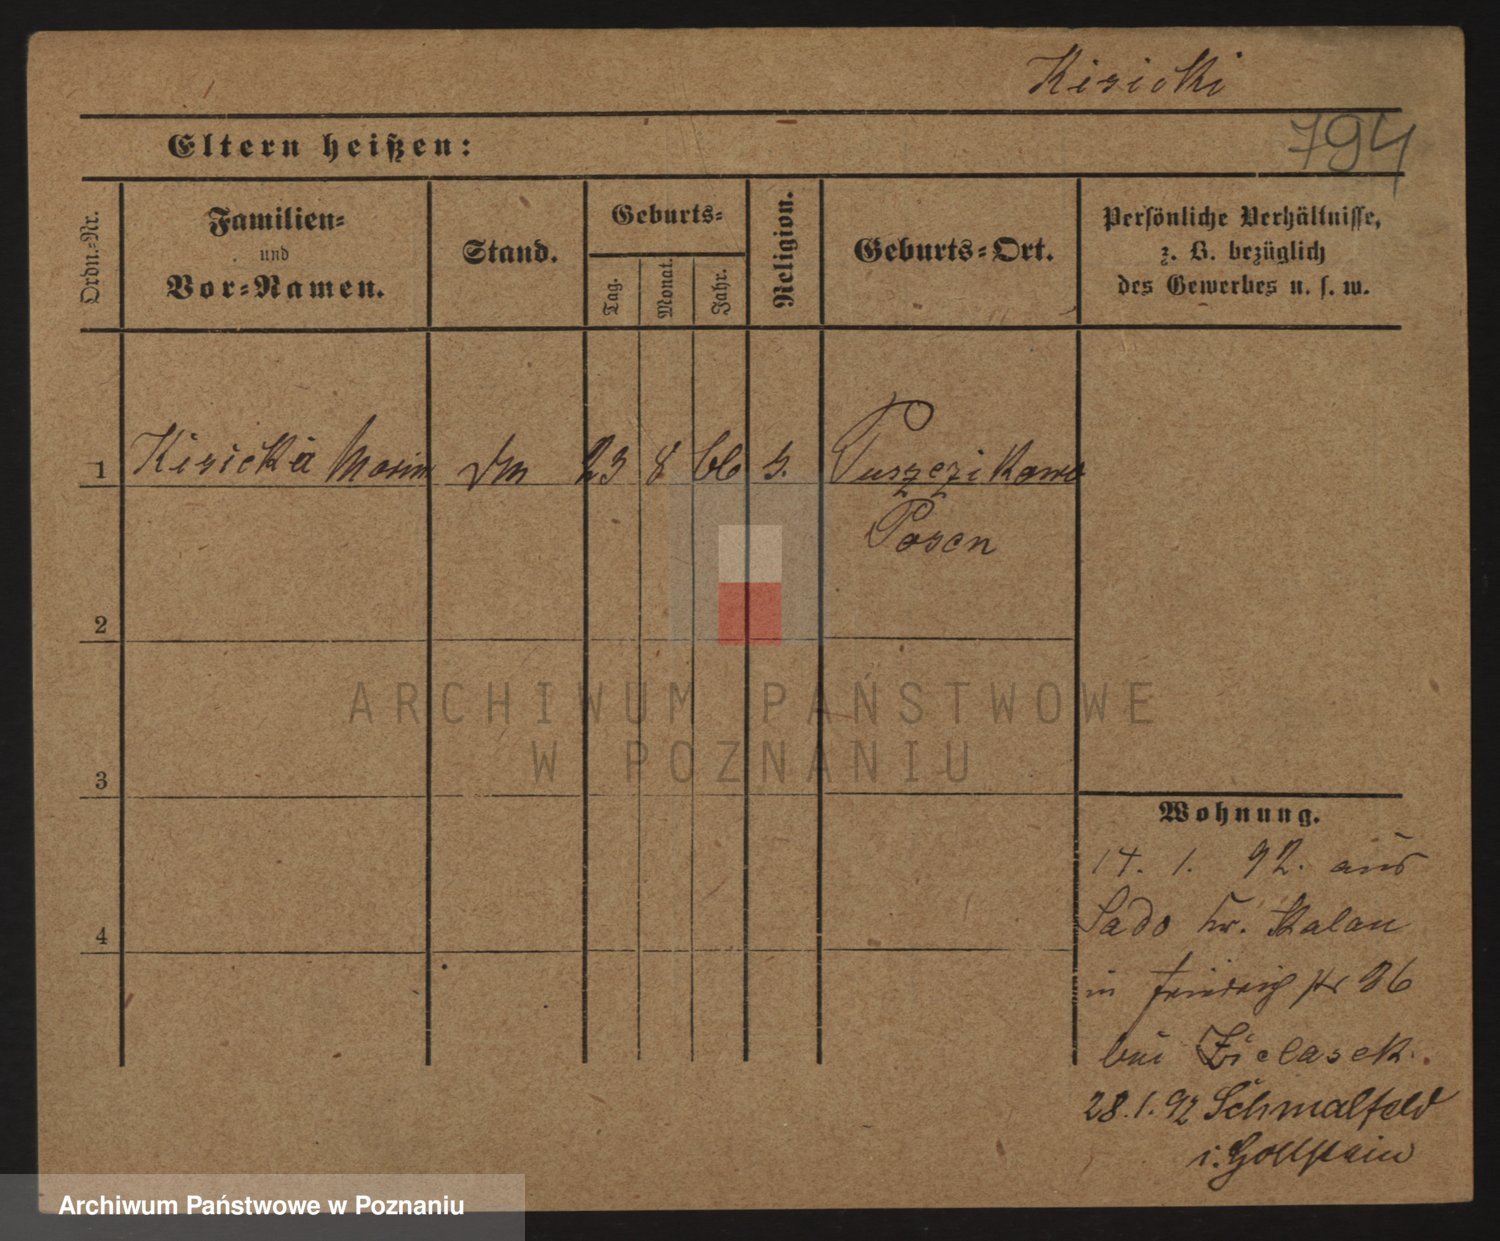 Kisicki
794
Eltern heißen:
Ordn.-Nr.
Familien-
und
Vor-Namen.
Stand.
Geburts-
Tag.
Monat.
Jahr.
Religion.
Geburts-Ort.
Persönliche Verhältnisse,
z. B. bezüglich
des Gewerbes u. s. w.
1 Kisicka 23 8 66 Puszczikowo
Posen
2
3
4
Wohnung.
14. 1. 92. aus
Sado Kr.
in Friedrichstr 26
bei Zielasek.
28.1.92 Schmalfeld
i. Hollstein
ARCHIWUM PAŃSTWOWE
W POZNANIU
Archiwum Państwowe w Poznaniu